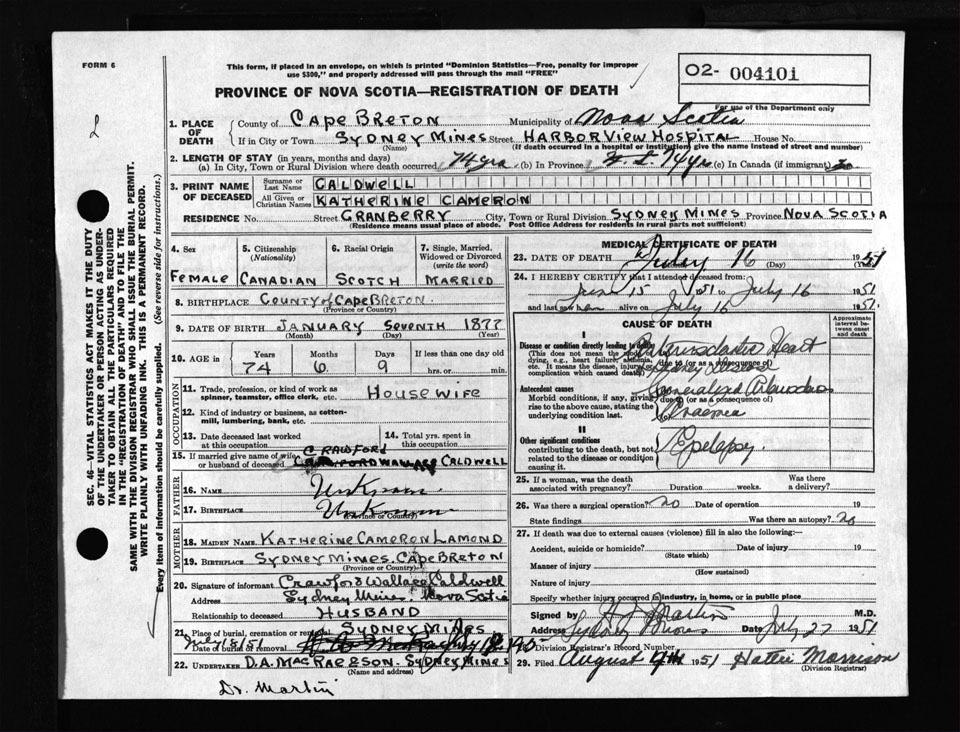 FORM 6
This form, if placed in an envelope, on which is printed "Dominion Statistics—Free, penalty for improper
use $300," and properly addressed will pass through the mail "FREE"
O2- 004101
For use of the Department only
PROVINCE OF NOVA SCOTIA—REGISTRATION OF DEATH
SEC. 46—VITAL STATISTICS ACT MAKES IT THE DUTY
OF THE UNDERTAKER OR PERSON ACTING AS UNDER-
TAKER TO OBTAIN ALL THE PARTICULARS REQUIRED
IN THE "REGISTRATION OF DEATH" AND TO FILE THE
SAME WITH THE DIVISION REGISTRAR WHO SHALL ISSUE THE BURIAL PERMIT.
WRITE PLAINLY WITH UNFADING INK. THIS IS A PERMANENT RECORD.
Every item of information should be carefully supplied. (See reverse side for instructions.)
1. PLACE OF DEATH
County of CAPE BRETON Municipality of Nova Scotia
If in City or Town SYDNEY MINES Street HARBOR VIEW HOSPITAL House No.
(Name) (If death occurred in a hospital or institution give the name instead of street and number)
2. LENGTH OF STAY (in years, months and days)
(a) In City, Town or Rural Division where death occurred 74 yrs (b) In Province 74 yrs (c) In Canada (if immigrant)
3. PRINT NAME OF DECEASED
Surname or Last Name CALDWELL
All Given or Christian Names KATHERINE CAMERON
RESIDENCE No. Street GRANBERRY City, Town or Rural Division SYDNEY MINES Province NOVA SCOTIA
(Residence means usual place of abode. Post Office Address for residents in rural parts not sufficient)
4. Sex FEMALE
5. Citizenship (Nationality) CANADIAN
6. Racial Origin SCOTCH
7. Single, Married, Widowed or Divorced (write the word) MARRIED
8. BIRTHPLACE COUNTY of CAPE BRETON.
(Province or Country)
9. DATE OF BIRTH JANUARY SEVENTH 1877
(Month) (Day) (Year)
10. AGE in Years Months Days If less than one day old
74 6 9 hrs. or min.
OCCUPATION
11. Trade, profession, or kind of work as
spinner, teamster, office clerk, etc. HOUSEWIFE
12. Kind of industry or business, as cotton-
mill, lumbering, bank, etc.
13. Date deceased last worked
at this occupation
14. Total yrs. spent in
this occupation
15. If married give name of wife
or husband of deceased CRAWFORD WALLACE CALDWELL
FATHER
16. NAME Unknown.
17. BIRTHPLACE Unknown
(Province or Country)
MOTHER
18. MAIDEN NAME KATHERINE CAMERON LAMOND
19. BIRTHPLACE SYDNEY MINES, CAPE BRETON
(Province or Country)
20. Signature of informant Crawford Wallace Caldwell
Address Sydney Mines. Nova Scotia
Relationship to deceased HUSBAND
21. Place of burial, cremation or removal SYDNEY MINES
Date of burial or removal July 18/51
22. UNDERTAKER D.A. MACRAE & SON. SYDNEY MINES
(Name and address)
Dr. Martin
MEDICAL CERTIFICATE OF DEATH
23. DATE OF DEATH July 16 1951
(Day) (Year)
24. I HEREBY CERTIFY that I attended deceased from:
June 15 1951 to July 16 1951
and last saw h alive on July 16 1951.
CAUSE OF DEATH
Approximate interval between onset and death
I
Disease or condition directly leading to death
(This does not mean the mode of
dying, e.g., heart failure, asthenia,
etc. It means the disease, injury or
complication which caused death)
Heart
due to (or as a consequence of)
Antecedent causes
Morbid conditions, if any, giving
rise to the above cause, stating the
underlying condition last.
Generalized
due to (or as a consequence of)
II
Other significant conditions
contributing to the death, but not
related to the disease or condition
causing it.
Epilepsy.
25. If a woman, was the death
associated with pregnancy? Duration weeks. Was there
a delivery?
26. Was there a surgical operation? no Date of operation 19
State findings Was there an autopsy? no
27. If death was due to external causes (violence) fill in also the following:—
Accident, suicide or homicide? Date of injury 19
(State which)
Manner of injury
(How sustained)
Nature of injury
Specify whether injury occurred in industry, in home, or in public place
Signed by Martin M.D.
Address Sydney Mines Date July 27 1951
28. Division Registrar's Record Number
29. Filed August 1951 Morrison
(Division Registrar)